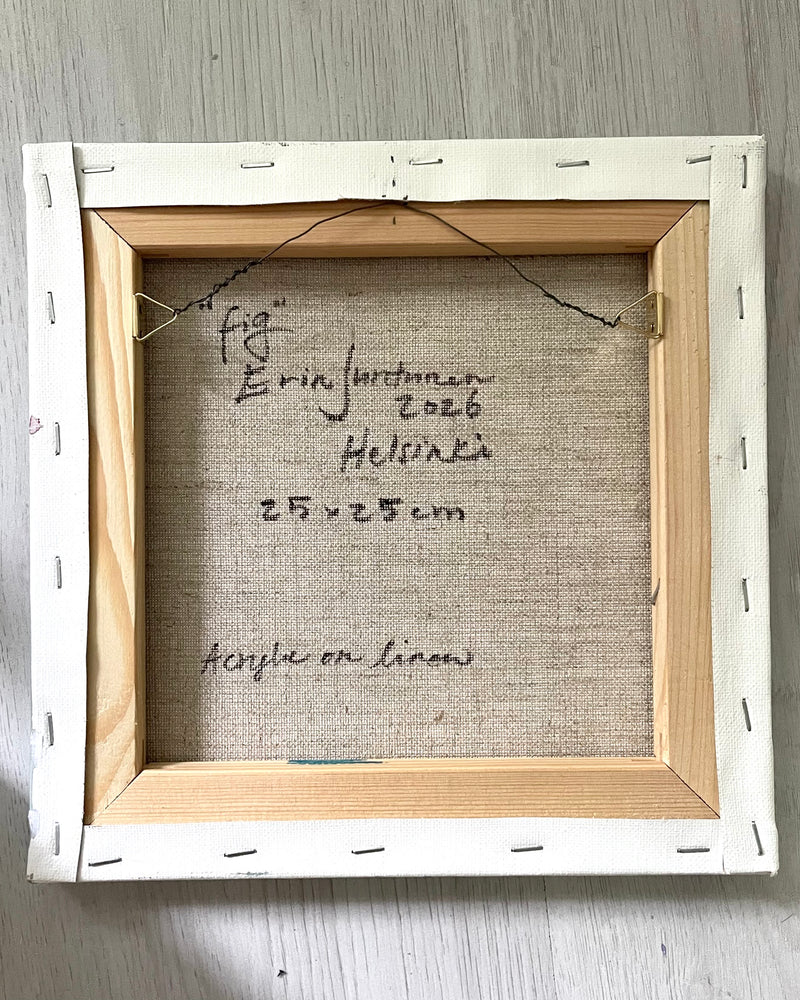 "fig"
Erin
2026
Helsinki
25x25cm
Acrylic on linen